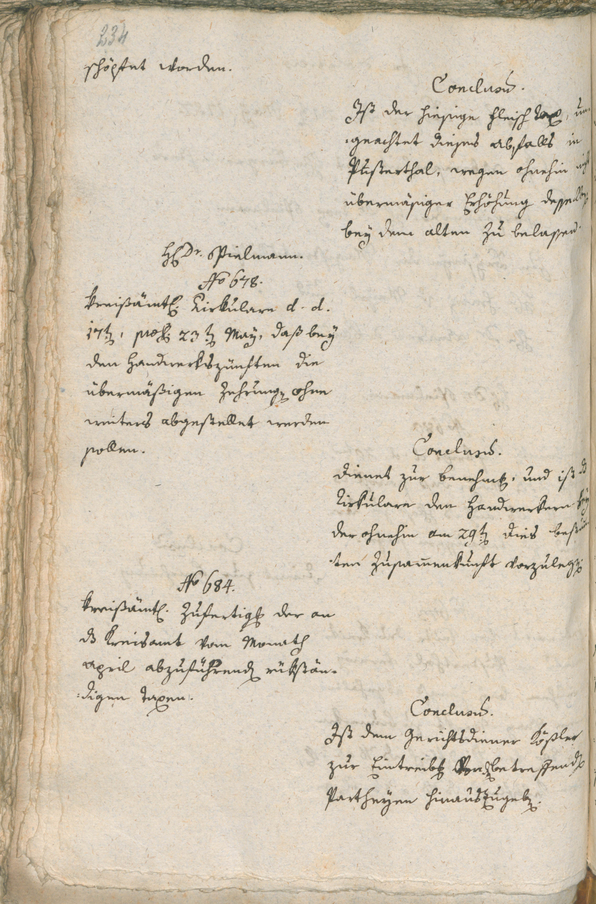 234
schöpfet worden.
Conclusum.
Ist der hiesige Fleisch Tax, un-
geachtet dieses abfalls in
Pusterthal, wegen ohnehin nicht
übermäsiger Erhöhung desselben
bey dem alten zu belassen.
H. Dr. Spielmann.
No 678.
Kreißämtl. Cirkulare d. d.
17t, prs. 23t May, daß bey
den Handwerkszünften die
übermäßigen Zehrungen ohne
weiters abgestellet werden
sollen.
Conclusum.
Dienet zur benehmen, und ist das
Cirkulare den Handwerkern bey
der ohnehin am 29t dies bestim-
ten Zusammenkunft vorzulegen.
No 684.
Kreißämtl. Zufertigung der an
das Kreisamt vom Monath
April abzuführenden rükstän-
digen Taxen.
Conclusum.
Ist dem Gerichtsdiener Kößler
zur Eintreibung von betreffenden
Partheyen hinauszugeben.